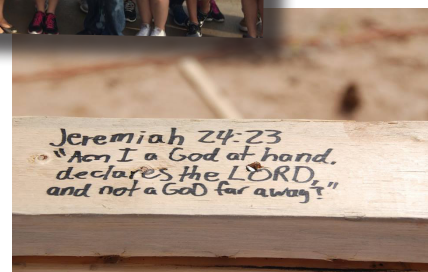 Jeremiah 24:23
"Am I a God at hand,
declares the LORD,
and not a GoD far away?"